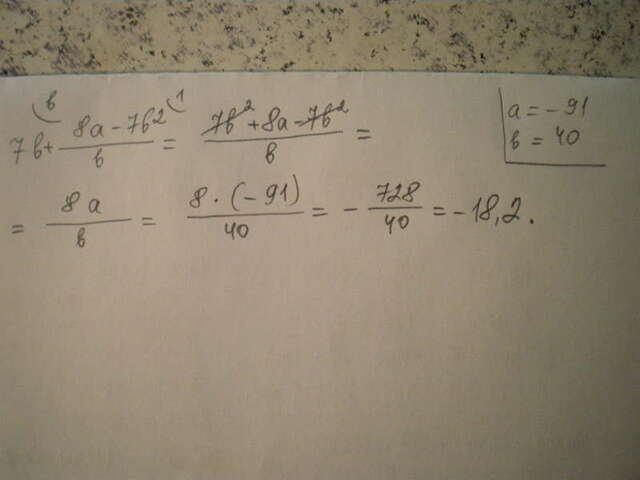 7в + (8а - 7в²)/в = (7в² + 8а - 7в²)/в =
в 1
а = -91
в = 40
= 8а/в = 8 · (-91)/40 = - 728/40 = - 18,2.